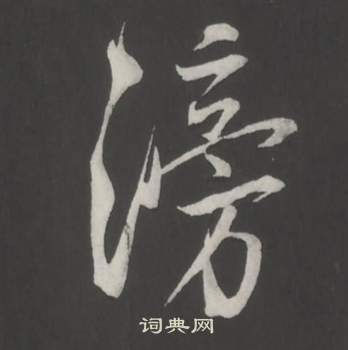 滂
词典网